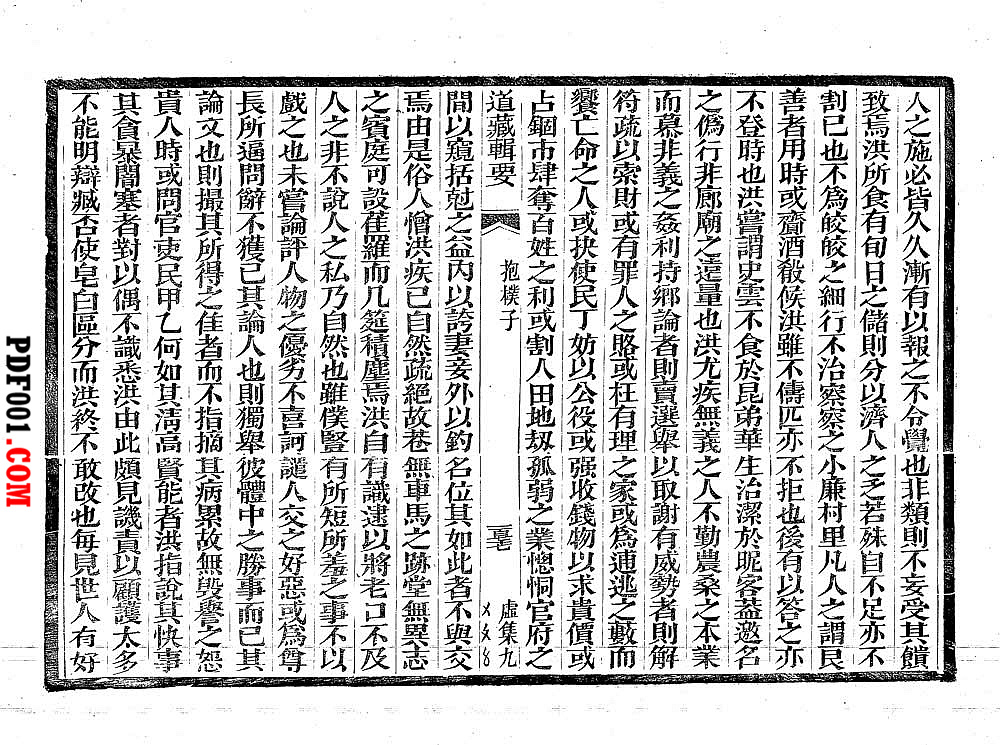 人之施必皆久久漸有以報之不令覺也非類則不妄受其饋
致焉洪所食有旬日之儲則分以濟人之乏若殊自不足亦不
割己也不爲皎皎之細行不治察察之小廉村里凡人之謂良
善者用時或齎酒殽候洪雖不儔匹亦不拒也後有以答之亦
不登時也洪嘗謂史雲不食於昆弟華生治潔於昵客蓋邀名
之僞行非廊廟之遠量也洪尤疾無義之人不勤農桑之本業
而慕非義之姦利持鄉論者則賣選舉以取謝有威勢者則解
符疏以索財或有罪人之賂或枉有理之家或爲逋逃之藪而
饗亡命之人或挾使民丁妨以公役或强收錢物以求貴價或
占錮市肆奪百姓之利或割人田地劫孤弱之業惚恫官府之
道藏輯要
抱樸子
虛集九
間以窺掊尅之益内以誇妻妾外以釣名位其如此者不與交
焉由是俗人憎洪疾己自然疏絶故巷無車馬之跡堂無異志
之賓庭可設雀羅而几筵積塵焉洪自有識逮以將老口不及
人之非不說人之私乃自然也雖僕豎有所短所羞之事不以
戲之也未嘗論評人物之優劣不喜訶譴人交之好惡或爲尊
長所逼問辭不獲已其論人也則獨舉彼體中之勝事而已其
論文也則撮其所得之佳者而不指摘其病累故無毀譽之怨
貴人時或問官吏民甲乙何如其淸高賢能者洪指說其快事
其貪暴闇塞者對以偶不識悉洪由此頗見譏責以顧護太多
不能明辯臧否使皂白區分而洪終不敢改也每見世人有好
PDF001.COM